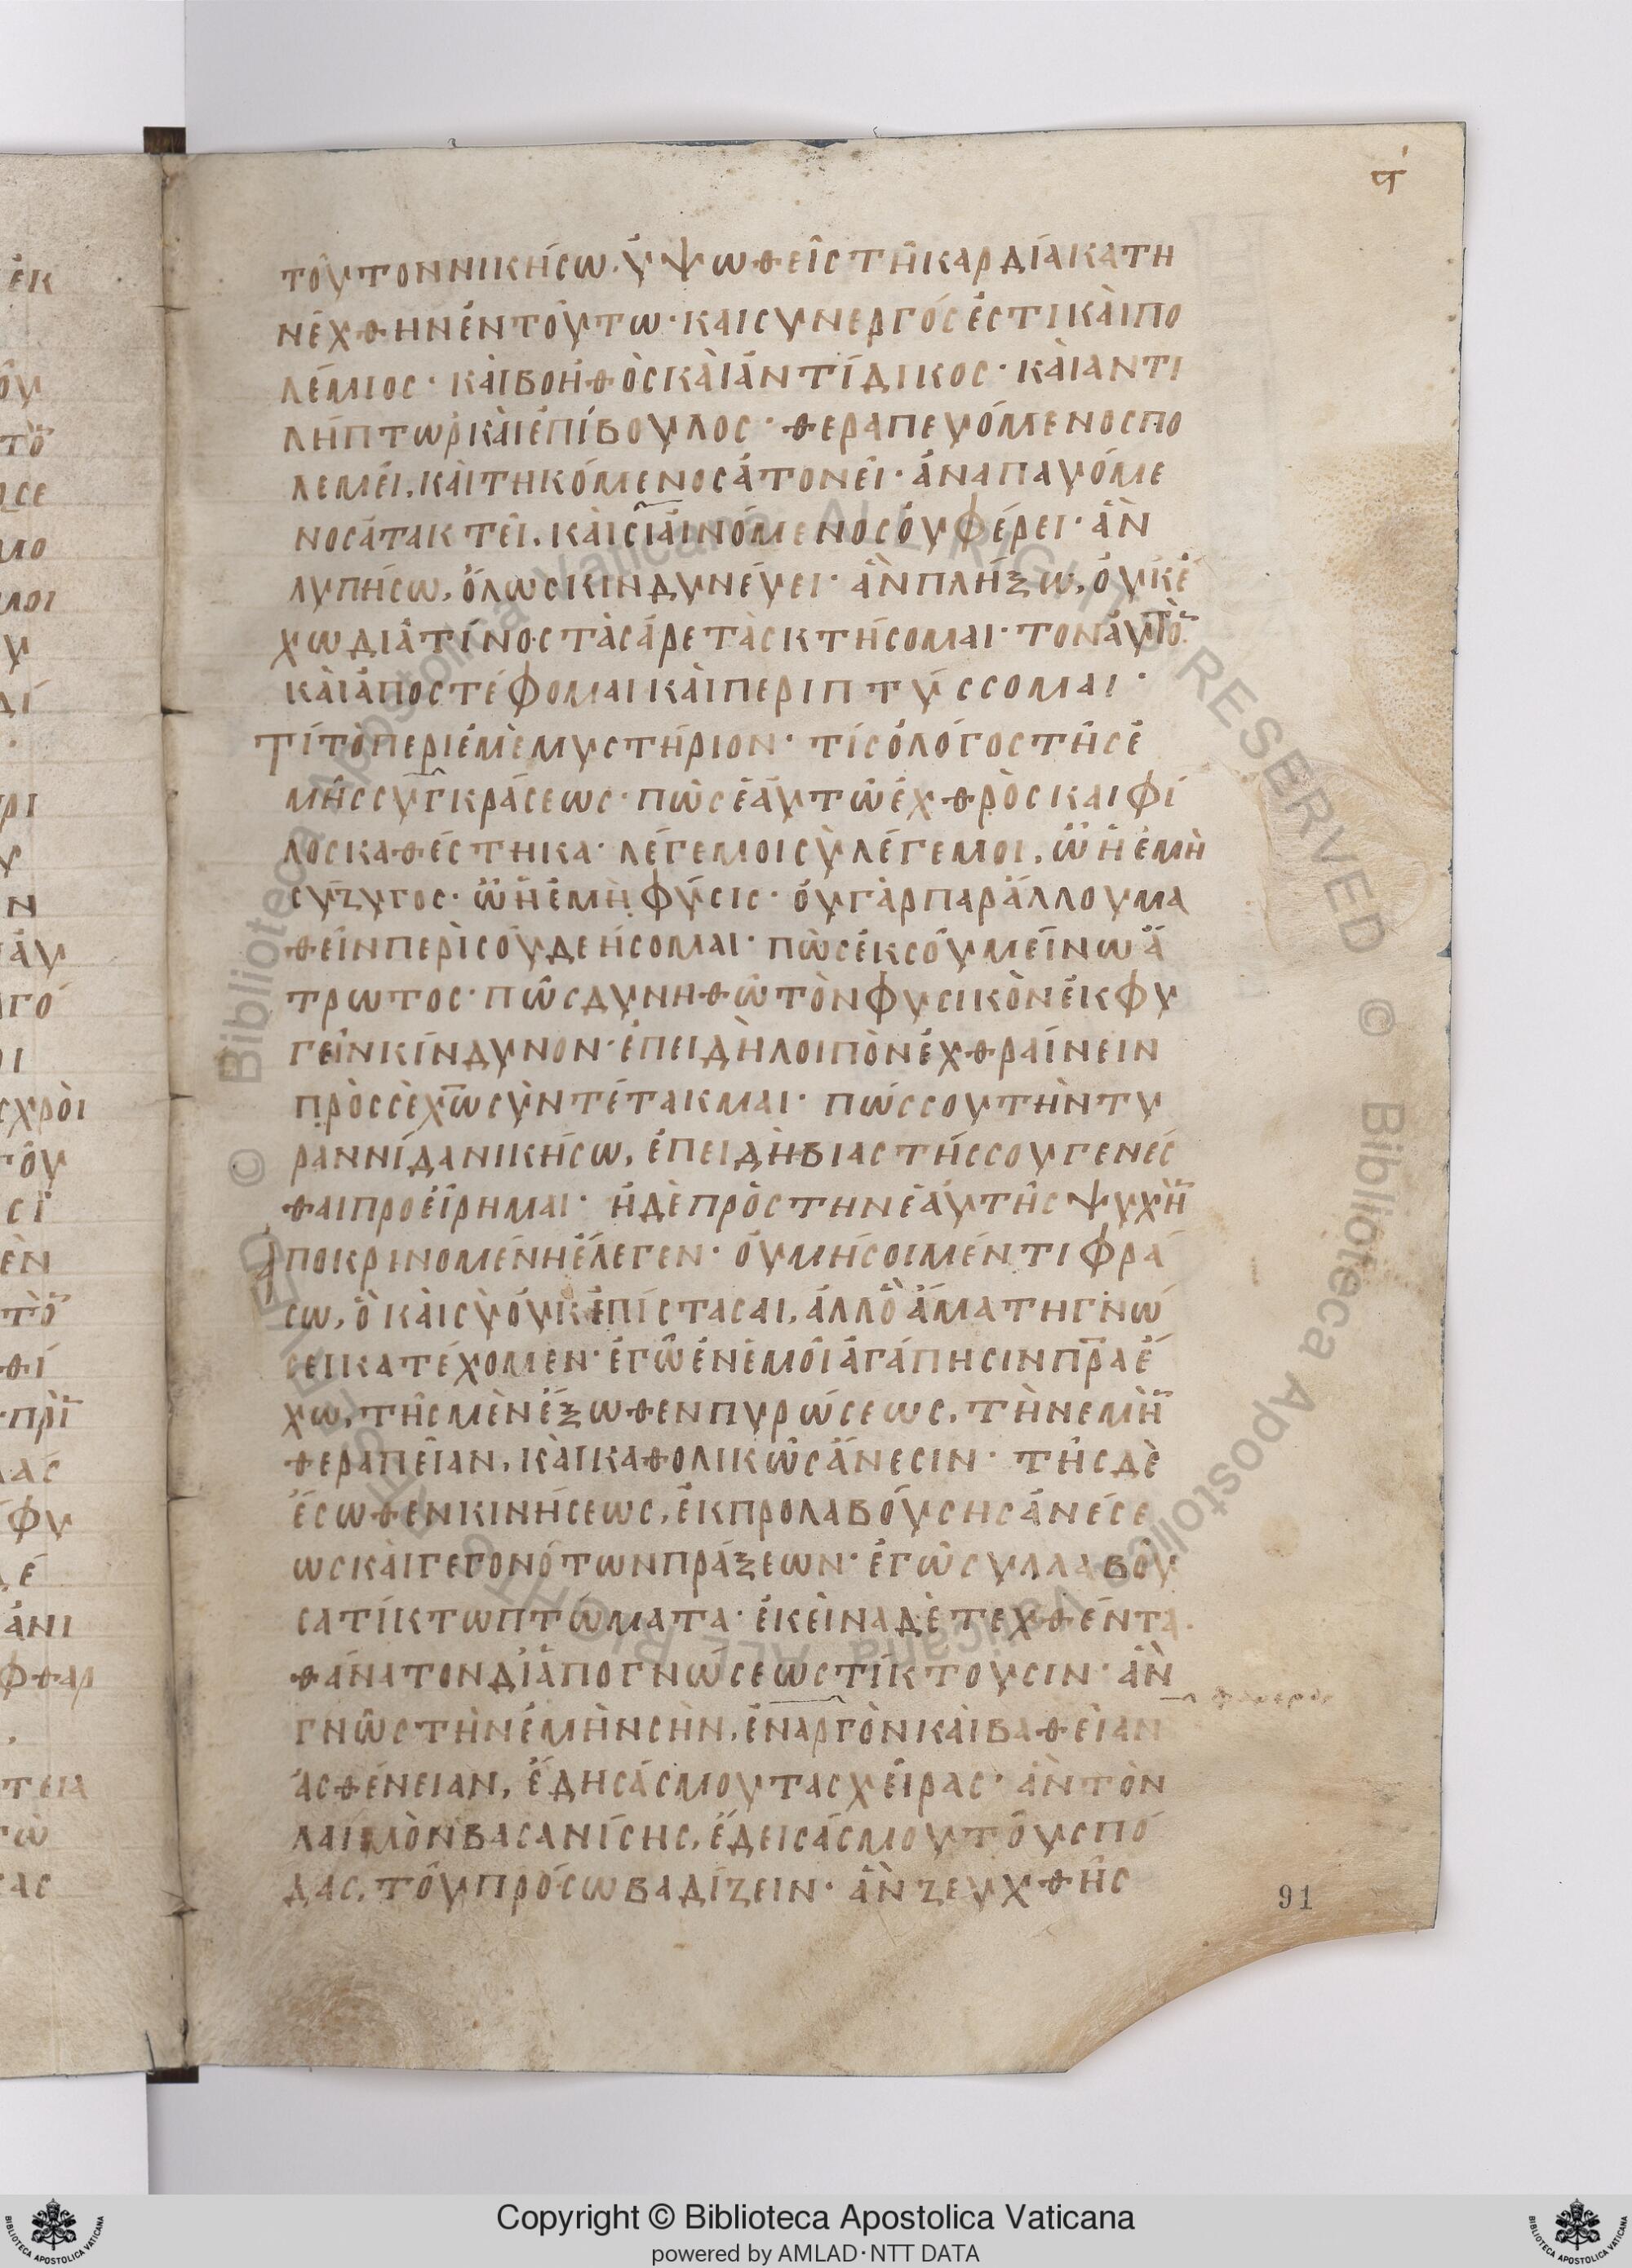 ϥ́
τοῦτον νικήσω. ὑψωθεὶς τῆ καρδία κατη
νέχθην ἐν τούτω· και συνεργός ἐστι καὶ πο
λέμιος· καὶ βοηθὸς καὶ ἀντίδικος· καὶ αντι
λήπτωρ καὶ ἐπίβουλος· θεραπευόμενος πο
λεμεῖ, καὶ τηκόμενος ἀτονεῖ· ἀναπαυόμε
νος ἀτακτεῖ, καὶ σιαινόμενος οὐ φέρει· ἂν
λυπήσω, ὅλως κινδυνεύει· ἂν πλήξω, οὐκ ἔ
χω διὰ τίνος τὰς ἀρετὰς κτήσομαι· τον αὐτὸ
καὶ ἀποστέφομαι καὶ περιπτύσσομαι·
τί τὸ περὶ ἐμὲ μυστήριον· τίς ὁ λόγος τῆς ἐ
μῆς συγκράσεως· πῶς ἑαυτῶ ἐχθρὸς και φί
λος καθέστηκα· λέγε μοι σὺ λέγε μοι, ὦ ἡ ἐμὴ
σύζυγος· ὦ ἡ ἐμὴ φύσις· οὐ γὰρ παρ ἄλλου μα
θεῖν περὶ σοῦ δεήσομαι· πῶς ἐκ σοῦ μείνω ἄ
τρωτος· πῶς δυνηθῶ τὸν φυσικὸν ἐκφυ
γεῖν κίνδυνον· ἐπειδὴ λοιπὸν ἐχθραίνειν
πρὸς σὲ χω συντέτακμαι· πώς σου τὴν τυ
ραννίδα νικήσω, ἐπειδὴ βιαστής σου γενέσ
θαι προείρημαι· ἡ δὲ πρὸς την ἑαυτῆς ψυχὴ
ἀποκρινομένη ἔλεγεν· οὐ μή σοι μέν τι φρά
σω, ὃ καὶ σὺ οὐκ ἐπίστασαι, ἀλλ ὃ ἅμα τη γνώ
σει κατέχομεν· ἐγὼ ἐν ἐμοὶ ἀγάπησιν πρα ἔ
χω, τῆς μὲν ἔξωθεν πυρώσεως, τὴν εμὴ
θεραπείαν, καὶ καθολικῶς ἄνεσιν· τῆς δὲ
ἔσωθεν κινήσεως, ἐκ προλαβούσης ἀνέσε
ως καὶ γεγονότων πράξεων· ἐγὼ συλλαβοῦ
σα τίκτω πτώματα· ἐκεῖνα δὲ τεχθέντα
θάνατον δι ἀπογνώσεως τίκτουσιν· ἂν
γνῶς τὴν ἐμὴν σὴν, ἐναργὸν καὶ βαθεῖαν
ἀσθένειαν, ἔδησάς μου τας χεῖρας· ἂν τὸν
λαιμὸν βασανίσης, ἔδεισάς μου τοὺς πό
δας, τοῦ πρόσω βαδίζειν· ἂν ζευχθῆς
91
Copyright © Biblioteca Apostolica Vaticana
powered by AMLAD·NTT DATA